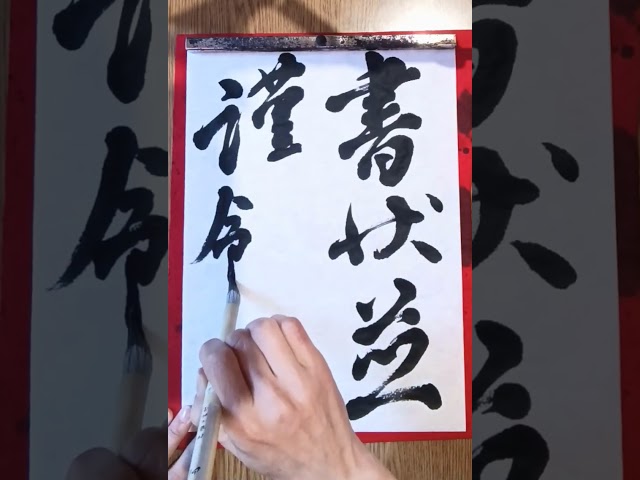 書状並
謹